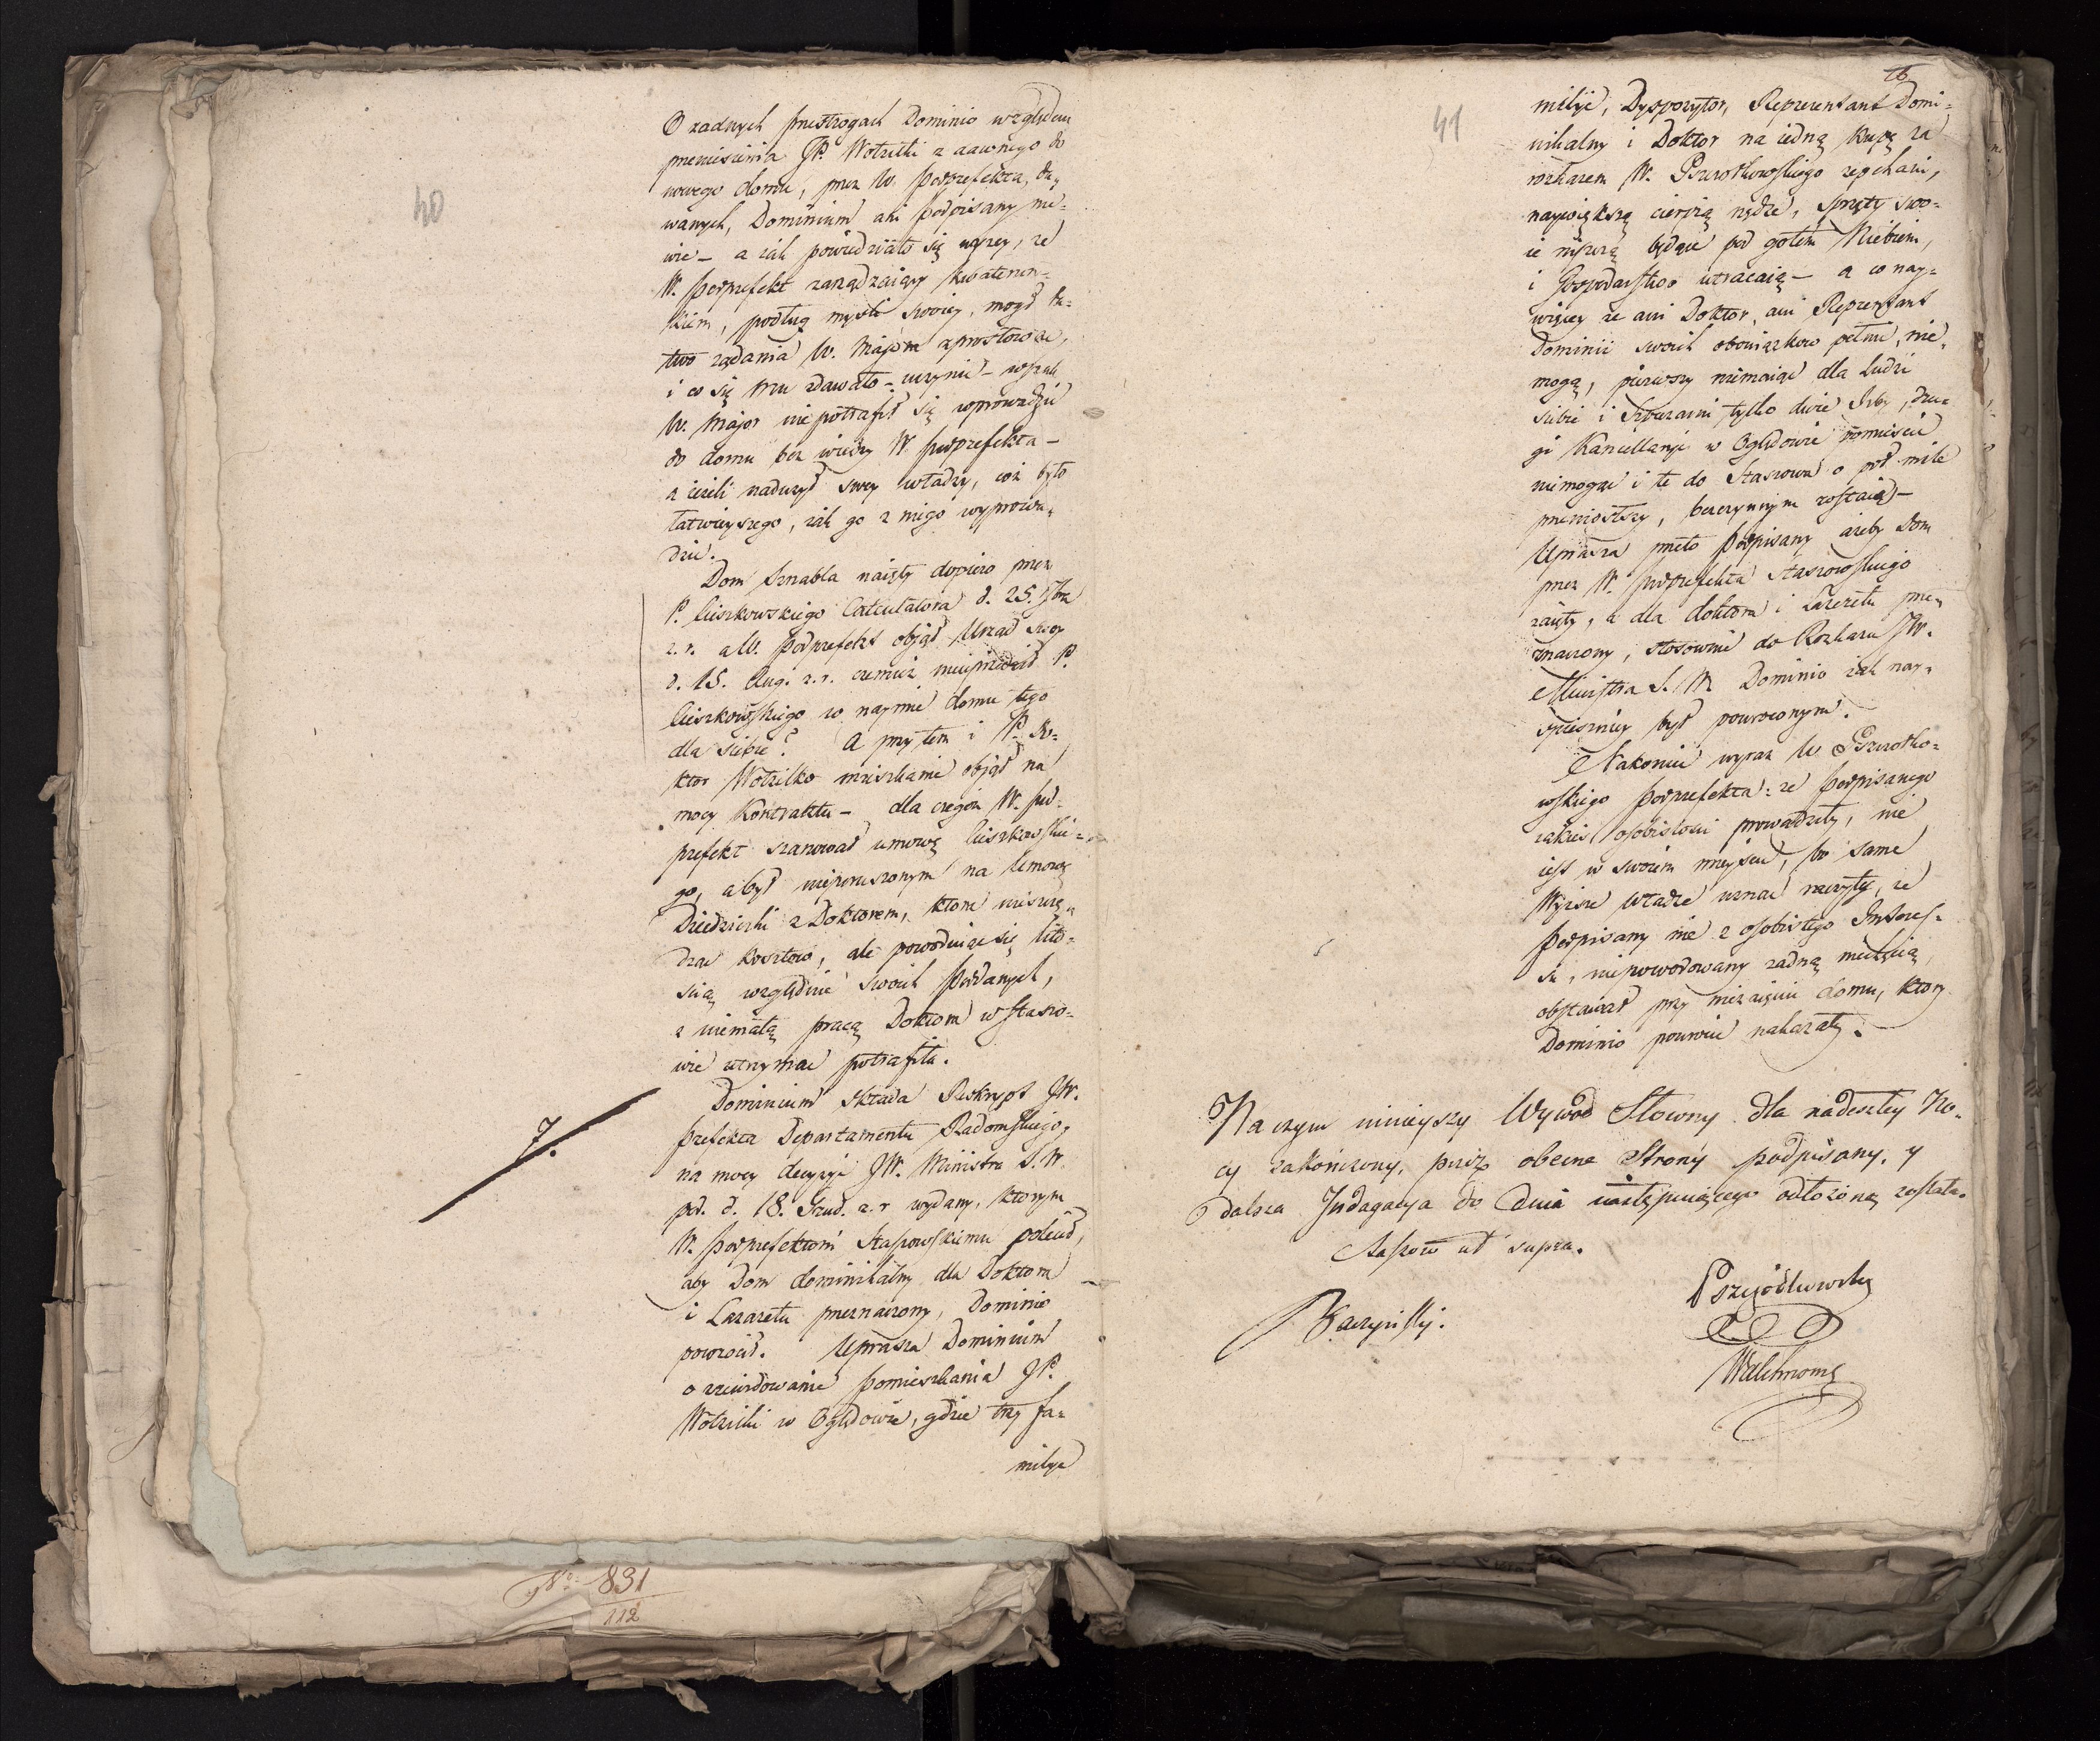 40
O żadnych przestrogach Dominio względem
przeniesienia JP. Wotziłki z dawnego do
nowego domu, przez W. Podprefekta, da„
wanych, Dominium ani Podpisany nie„
wie – a iak powiedziało się wyżey, że
W. Podprefekt zarządzaiący kwaterun„
kiem, podług myśli swoiey, mógł ła„
two żądania W. Majora sprostować,
i co się mu zdawało – uczynić – wszak
W. Major nie potrafił się wprowadzić
do domu bez wiedzy W. Podprefekta –
a ieżeli nadużył swey władzy, coż było
łatwieyszego, iak go z niego wyprowa„
dzić.
Dom Sznabla naięty dopiero przez
P. Ciszkowskiego Calculatora d. 25. 7bra
z. r. a W. Podprefekt objął Urząd swoy
d. 15. Aug. z. r. czemuż nieuprzedził P.
Ciszkowskiego w naymie domu tego
dla siebie? A przytem i P. Do„
ktor Wotziłko mieszkanie objął na
mocy Kontraktu – dla czegoż W. Pod„
prefekt szanował umowę Ciszkowskie„
go, a był nieporuszonym na Umowę
Dziedziczki z Doktorem, ktora nieszczę„
dząc kosztow, ale powoduiąc się lito„
scią względnie swoich Poddanych,
z niemałą pracą Doktora w Staszo„
wie utrzymać potrafiła.
7.
Dominium składa Reskrypt JW.
Prefekta Departamentu Radomskiego,
na mocy decyzyi JW. Ministra S. W.
pod. d. 18. Grud. z. r. wydany, ktorym
W. Podprefektowi Staszowskiemu polecił,
aby Dom dominikalny dla Doktora
i Lazaretu przeznaczony, Dominio
powrocił. Uprasza Dominium
o zrewidowanie pomieszkania JP.
Wotziłki w Oględowie, gdzie trzy fa„
milye
No. 831
112
16
41
milije, Dyspozytor, Reprezentant Domi„
nikalny i Doktor na iedną kupę za
rozkazem W. Pszrotkowskiego zepchani,
naywiększą cierpią nędzę, sprzęty swo„
ie niszczą będące pod gołem Niebiem,
i Gospodarstwo utracaią – a co nay„
więcey że ani Doktor, ani Reprezentant
Dominii swoich obowiązkow pełnić nie„
mogą, pierwszy niemaiąc dla Ludzi
siebie i Izby tylko dwie Izby, dru„
gi Kancellaryi w Oględowie pomieścić
niemogąc i te do Staszowa o poł mili
przeniosłszy, bezczynnym zostaią –
Uprasza przeto Podpisany ażeby Dom
przez W. Podprefekta Staszowskiego
zaięty, a dla doktora i Lazaretu prze„
znaczony, stosownie do Rozkazu JW.
Ministra S. W. Dominio iak nay„
spieszniey był powroconym.
Nakoniec wyraz W. Pszrotko„
wskiego Podprefekta: że Podpisanego
iakieś osobistości prowadziły, nie
iest w swoim mieyscu, bo same
Wyższe Władze uznać raczyły, że
Podpisany nie z osobistego Interes„
su, niepowodowany żadną niechęcią,
obstawał przy niezaięciu domu, ktory
Dominio powrocić nakazały.
Na czym nineyszy Wywod Słowny dla nadeszłey No„
cy zakończony, przez obecne Strony podpisany, y
dalsza Indagacya do dnia następuiącego odłożoną została.
Staszow ut supra.